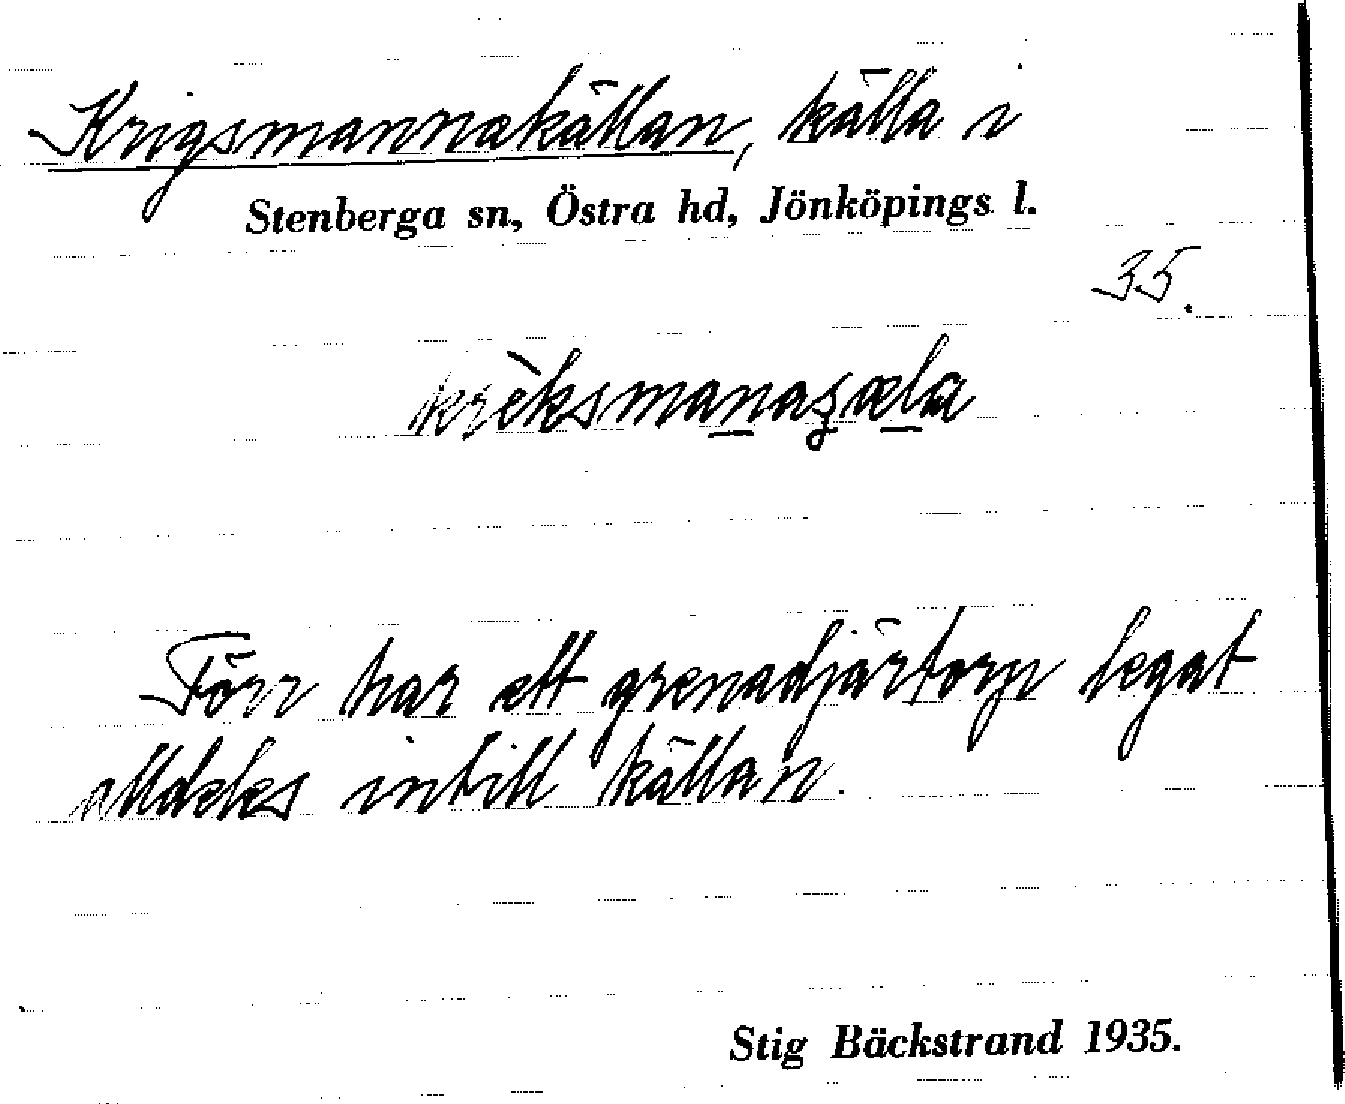 Krigsmannakällan, källa i
Stenberga sn, Östra hd, Jönköpings l.
35.
Förr har ett grenadjärtorp legat
alldeles intill källan.
Stig Bäckstrand 1935.